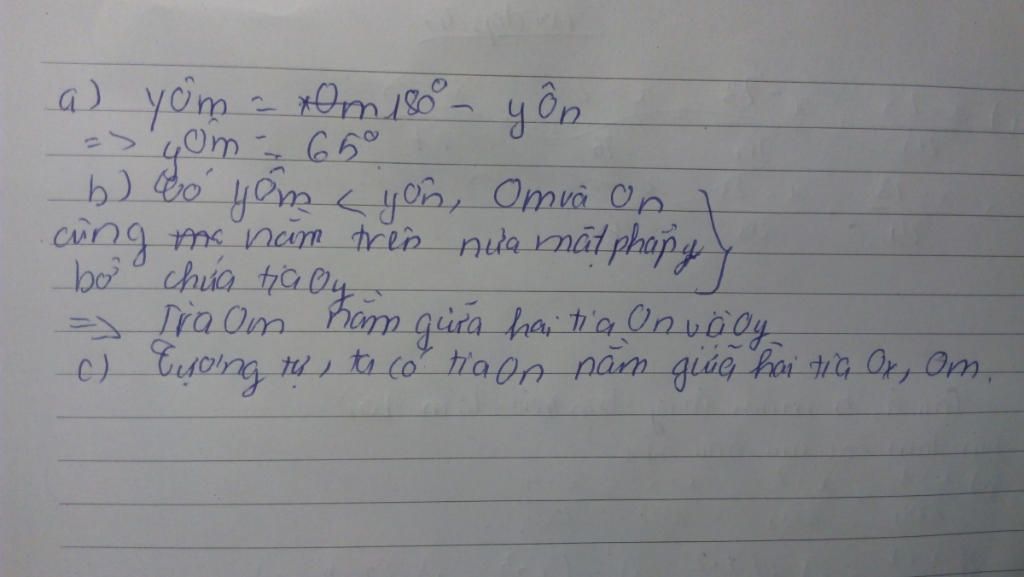 a) yÔm = xOm 180° - yÔn
=> yÔm = 65°
b) Có yÔm < yÔn, Om và On
cùng nằm trên nửa mặt phẳng
bờ chứa tia Oy
=> Tia Om nằm giữa hai tia On và Oy
c) Tương tự, ta có tia On nằm giữa hai tia Ox, Om.